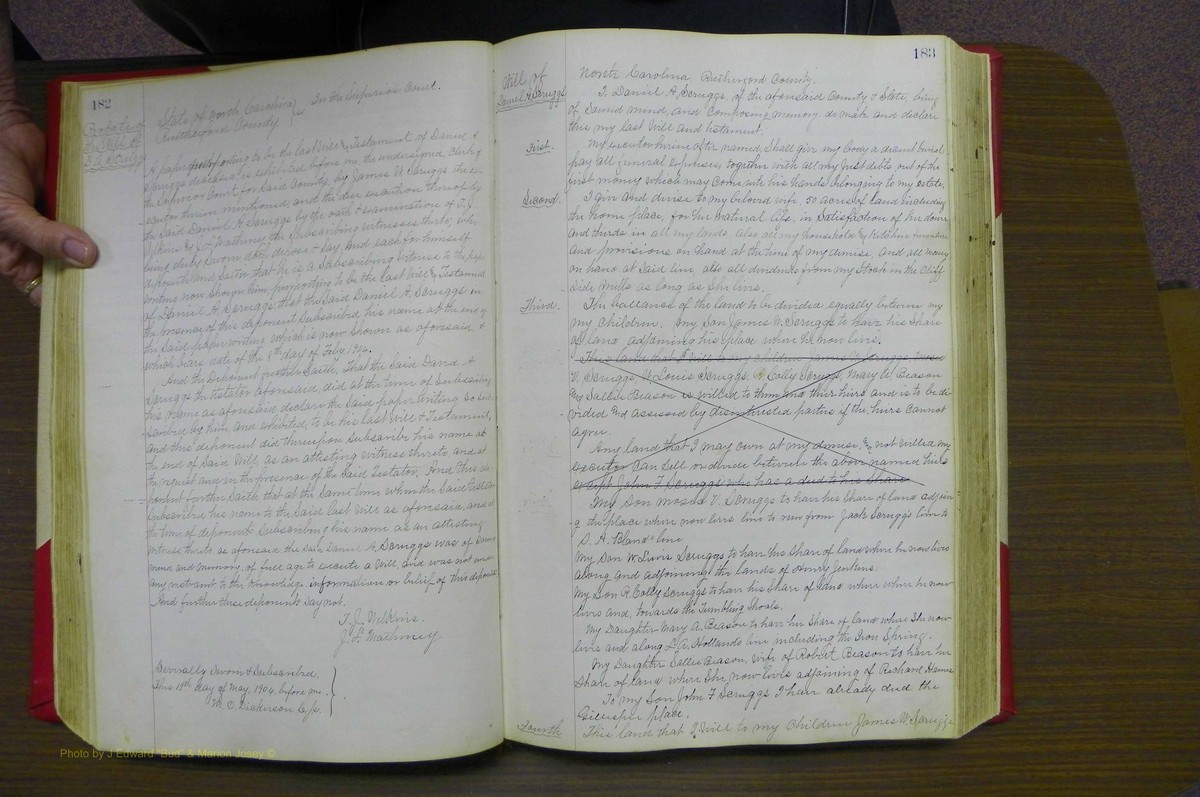 182
Probate of
the Will of
D. A. Scruggs
State of North Carolina } In the Superior Court.
Rutherford County
A paper purporting to be the last Will & Testament of Daniel A
Scruggs deceased is exhibited before me, the undersigned, Clerk of
the Superior Court for said County, by James W. Scruggs the ex-
ecutor therein mentioned, and the due execution thereof by
the said Daniel A. Scruggs by the oath & examination of T. J.
Wilkins & J. L. Matheney the subscribing witnesses thereto; who
being duly sworn doth depose & say, and each for himself
deposeth and saith that he is a subscribing witness to the paper
writing now shown him, purporting to be the last Will & Testament
of Daniel A. Scruggs; that the said Daniel A. Scruggs in
the presence of this deponent subscribed his name at the end of
the said paper writing which is now shown as aforesaid, &
which bears date of the 8th day of Feby 1904.
And the deponent further saith, That the said Daniel A
Scruggs the testator aforesaid, did at the time of subscribing
his name as aforesaid, declare the said paper writing so sub-
scribed by him and exhibited, to be his last Will & Testament,
and this deponent did thereupon subscribe his name at
the end of said Will, as an attesting witness thereto, and at
the request and in the presence of the said testator. And this de-
ponent further saith that at the same time when the said testator
subscribed his name to the said last Will as aforesaid, and at
the time of deponent subscribing his name as an attesting
witness thereto as aforesaid the said Daniel A. Scruggs was of sound
mind and memory, of full age to execute a Will, and was not under
any restraint to the knowledge, information or belief of this deponent
And further these deponents say not.
T. J. Wilkins.
J. L. Matheney
Severally Sworn & Subscribed,
this 19th day of May, 1904, before me.
M. O. Dickerson C.S.C.
183
Will of
Daniel A. Scruggs
North Carolina Rutherford County.
I, Daniel A. Scruggs, of the aforesaid County & State, being
of sound mind, and composing memory, do make and declare
this my last Will and testament.
First.
My executor herein after named, shall give my body a decent burial
pay all funeral expenses, together with all my just debts out of the
first money which may come into his hands belonging to my estate.
Second.
I give and devise to my beloved wife, 50 acres of land including
the home place, for her natural life, in satisfaction of her dower
and thirds in all my lands. Also all my household & kitchen furniture
and provisions on hand at the time of my demise, and all money
on hand at said time, also all dividends from my stock in the Cliff
side Mills as long as she lives.
Third.
The ballance of the land to be divided equally between my
my children. My son James W. Scruggs to have his share
of land adjoining his place where he now lives.
This land that I will to my children James W. Scruggs, Moses
V. Scruggs, W. Louis Scruggs, R. Colly Scruggs, Mary A. Beason
and Sallie Beason is willed to them and their hiers and is to be di-
vided and assessed by disinterested parties if the hiers cannot
agree.
Any land that I may own at my demise, & not willed my
executor can sell or divide between the above named hiers
except John F Scruggs who has a deed to his share
My Son Moses V. Scruggs to have his share of land adjoin-
g the place where now lives line to run from Jack Scruggs line to
S. A. Bland's line
My Son W. Lewis Scruggs to have his share of land where he now lives
along and adjoining the lands of Henry Jenkins.
My Son R. Colly Scruggs to have his share of land where where he now
lives and, towards the Tumbling Shoals.
My Daughter Mary A. Beason to have her share of land where she now
lives and along Hollands line including the Iron Spring.
My Daughter Sallie Beason, wife of Robert Beason to have her
share of land where she now lives adjoining of Richard
To my Son John F Scruggs I have already deed the
Gillespie place.
Fourth
This land that I will to my Children James W. Scruggs
Photo by J Edward "Bud" & Marion Josey ©